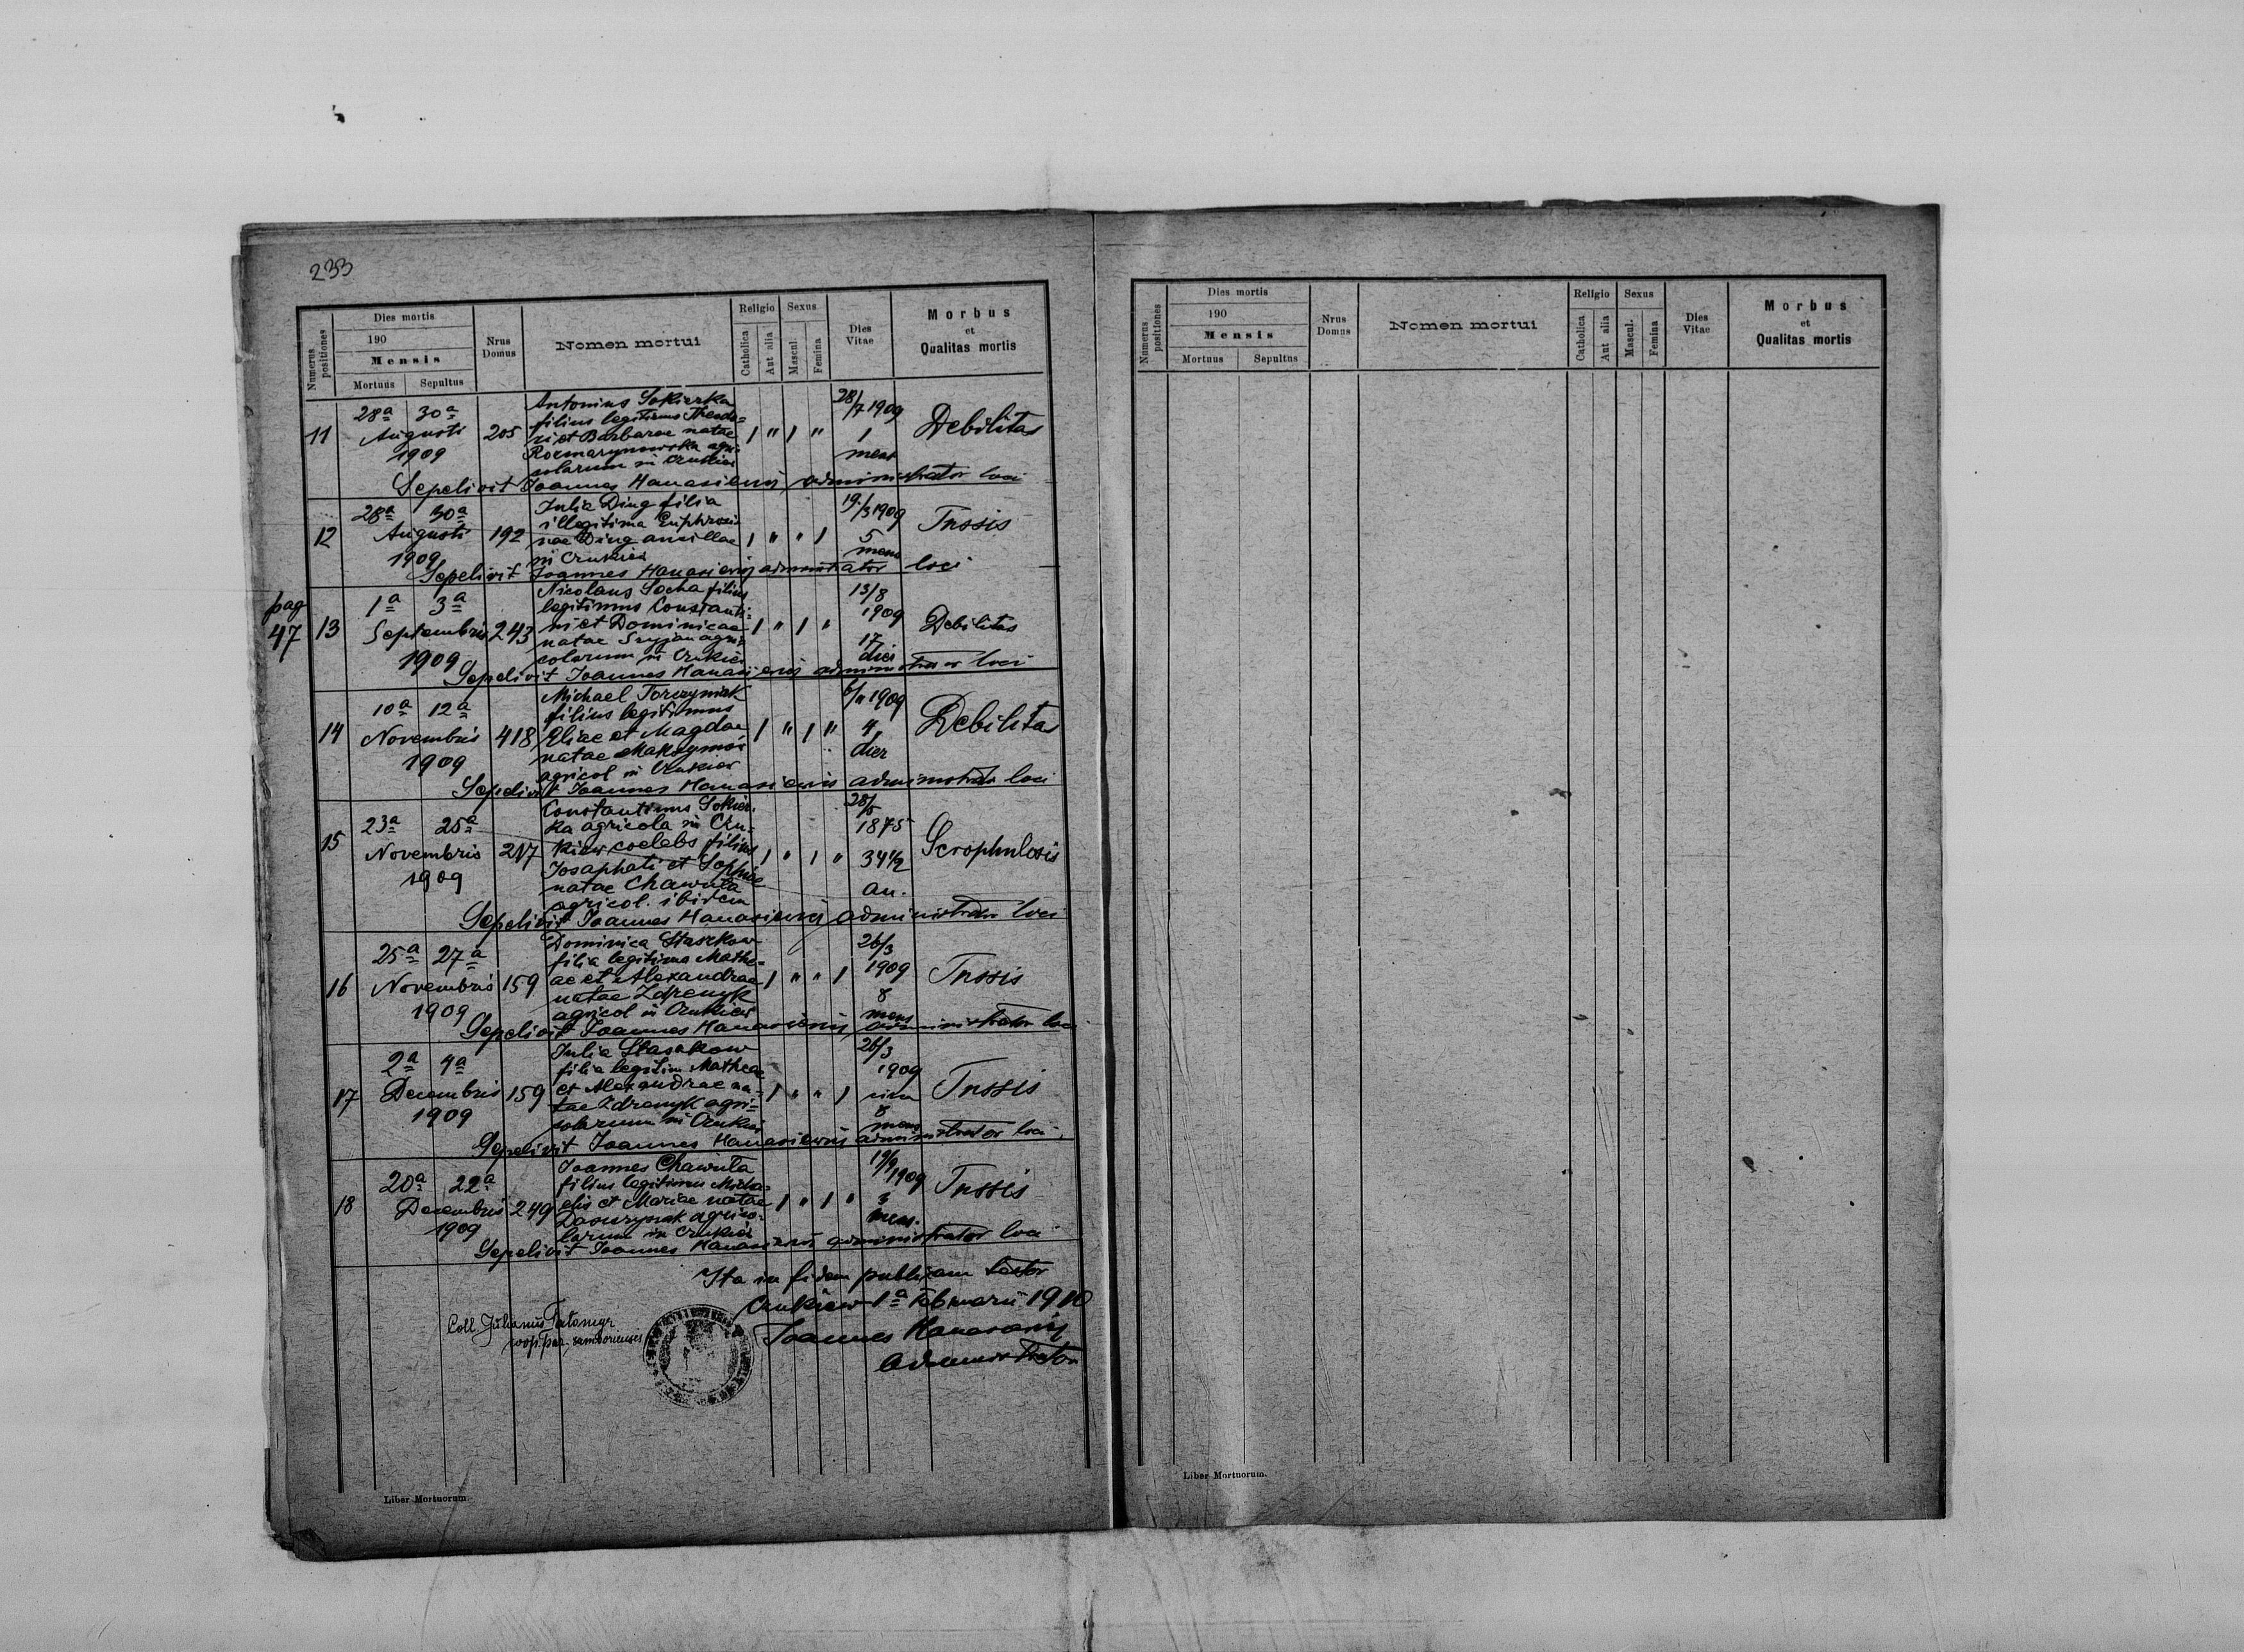 233
Numerus positiones
Dies mortis
190
Mensis
Mortuus Sepultus
Nrus Domus
Nomen mortui
Religio
Catholica
Aut alia
Sexus
Mascul.
Femina
Dies Vitae
Morbus
et
Qualitas mortis
11 28a 30a Augusti 1909 205
Antonius Sokierka
filius legitimus Theodo=
ri et Barbarae natae
agri=
colarum in
1 " 1 "
28/7 1909
1
mens
Debilitas
Sepelivit Joannes administrator loci
12 28a 30a Augusti 1909 192
Julia Ding filia
illegitima Euphrosi=
nae Ding ancillae
in
1 " " 1
19/3 1909
5
mens
Tussis
Sepelivit Joannes administrator loci
pag
47
13 1a 3a Septembris 1909 243
Nicolaus Socha filius
legitimus Constanti=
ni et Dominicae
natae agri=
colarum in
1 " 1 "
13/8
1909
17
dies
Debilitas
Sepelivit Joannes administrator loci
14 10a 12a Novembris 1909 418
Michael
filius legitimus
Eliae et Magdae
natae
agricol in
1 " 1 "
6/11 1909
4
dies
Debilitas
Sepelivit Joannes administrator loci
15 23a 25a Novembris 1909 217
Constantinus Sokier=
ka agricola in
coelebs filius
Josaphati et Sophiae
natae Chawuta
agricol. ibidem
1 " 1 "
28/5
1875
34 1/2
an.
Scrophulosis
Sepelivit Joannes administrator loci
16 25a 27a Novembris 1909 159
Dominica Staszkow
filia legitima Mathe=
ae et Alexandrae
natae
agricol in
1 " " 1
26/3
1909
8
mens
Tussis
Sepelivit Joannes administrator loci
17 2a 4a Decembris 1909 159
Julia Staszkow
filia legitim Matheae
et Alexandrae na=
tae agri=
colarum in
1 " " 1
26/3
1909
8
mens
Tussis
Sepelivit Joannes administrator loci
18 20a 22a Decembris 1909 249
Joannes Chawuta
filius legitimus Micha=
elis et Mariae natae
agrico=
larum in
1 " 1 "
19/9 1909
3
mens.
Tussis
Sepelivit Joannes administrator loci
Ita in fidem publicam testor
1a Februarii 1910
Joannes
Administrator
Coll. Julianus Tatomyr
coop. par.
Liber Mortuorum.
Numerus positiones
Dies mortis
190
Mensis
Mortuus Sepultus
Nrus Domus
Nomen mortui
Religio
Catholica
Aut alia
Sexus
Mascul.
Femina
Dies Vitae
Morbus
et
Qualitas mortis
Liber Mortuorum.